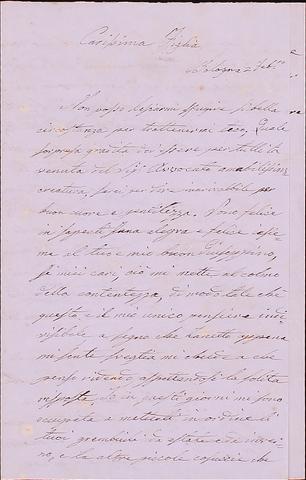 Carissima Figlia
Bologna 2 Feb.
Non posso lasciarmi sfuggire sì bella
circostanza per trattenermi teco. Quale
sorpresa gradita di sapere per tutti la
venuta del Sig. Avvocato amabilissima
creatura, sarei per dire inarrivabile per
buon cuore e gentilezza. Sono felice
in saperti sana allegra e felice assie-
me al tuo e mio buon Giuseppino,
sì miei cari, ciò mi mette al colmo
della contentezza, di modo tale che
questo è il mio unico pensiero indi-
visibile a segno che Zanetto appena
mi sente svegliata mi chiede a che
penso ridendo aspettandosi la solita
risposta. Io in questi giorni mi sono
occupata a metterti in ordine i
tuoi grembiuli da estate e da inver-
no, e le altre piccole cosucce che